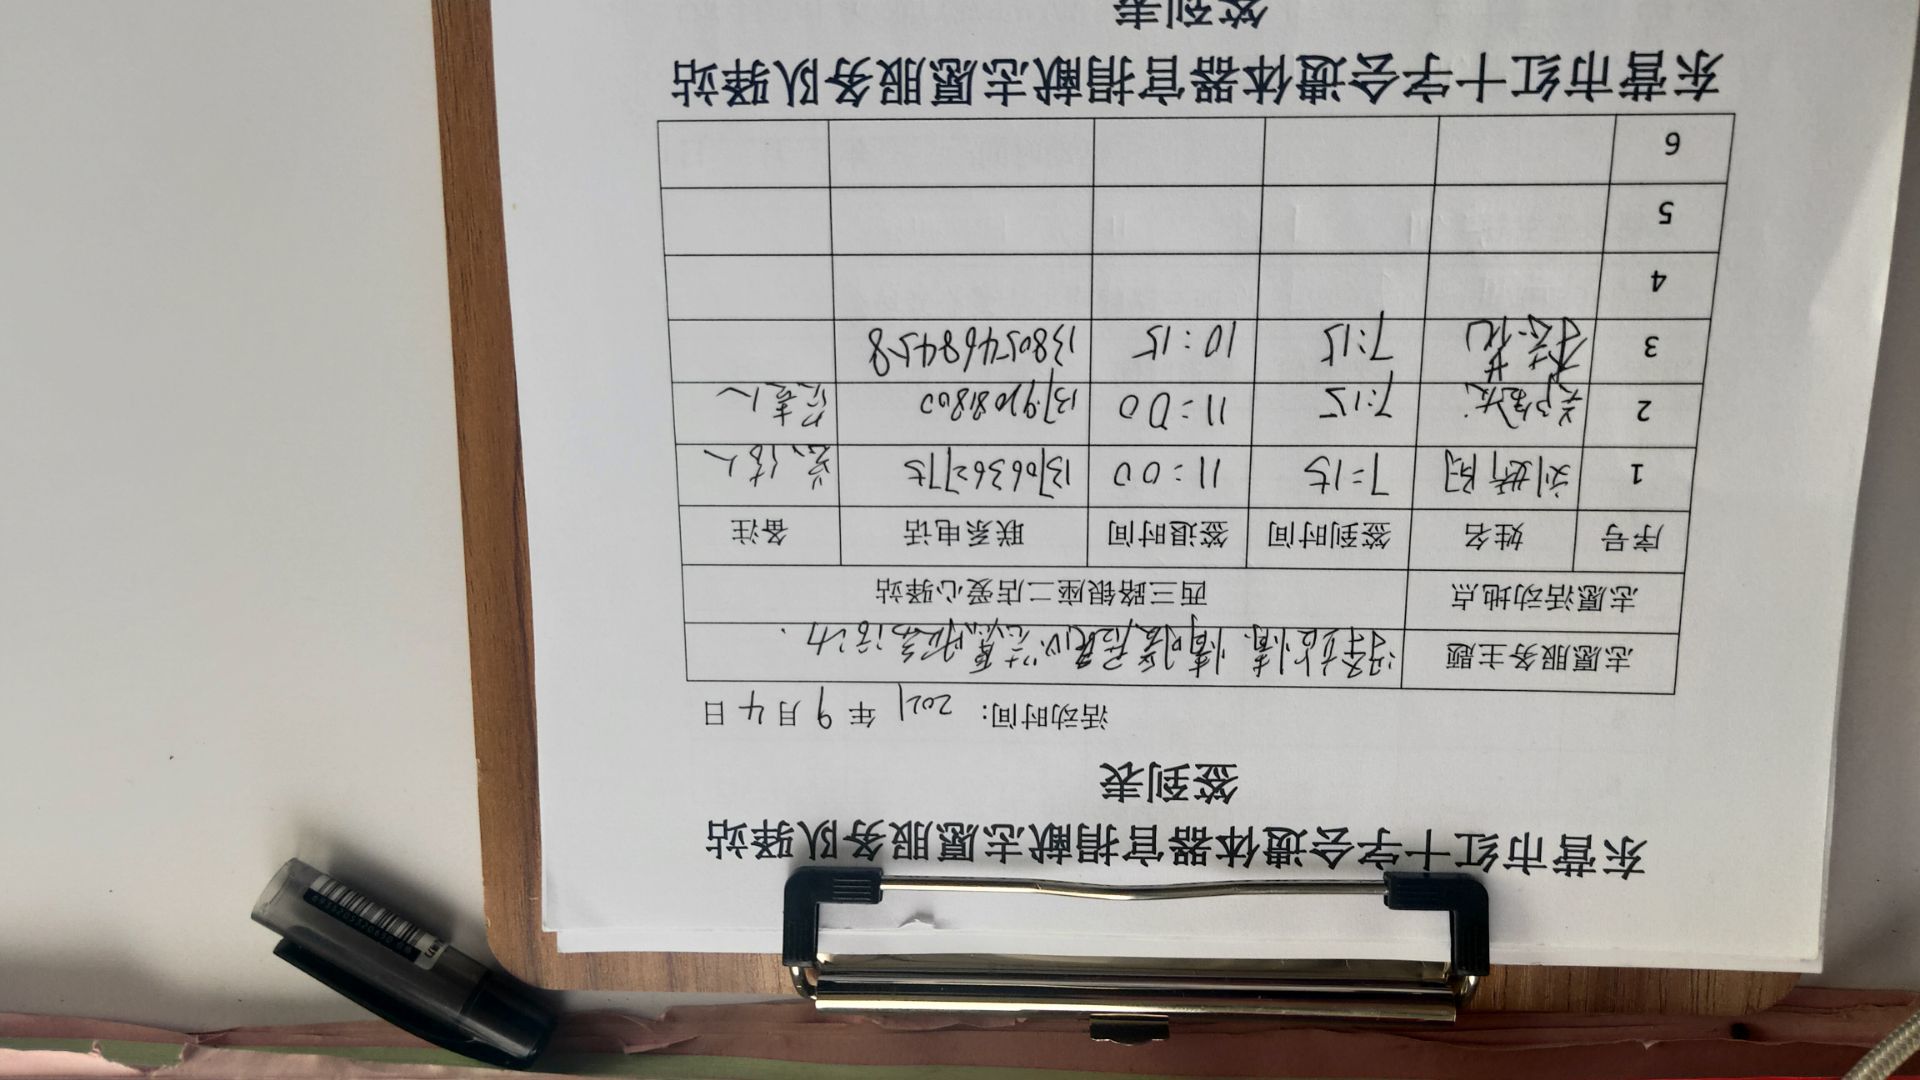 东营市红十字会遗体器官捐献志愿服务队驿站
签到表
活动时间： 2021 年 9 月 4 日
志愿服务主题 活动.
志愿活动地点 西三路银座二店爱心驿站
序号 姓名 签到时间 签退时间 联系电话 备注
1 刘 7:15 11:00 13706362775
2 7:15 11:00
3 7:15 10:15 13805468458
4
5
6
东营市红十字会遗体器官捐献志愿服务队驿站
签到表